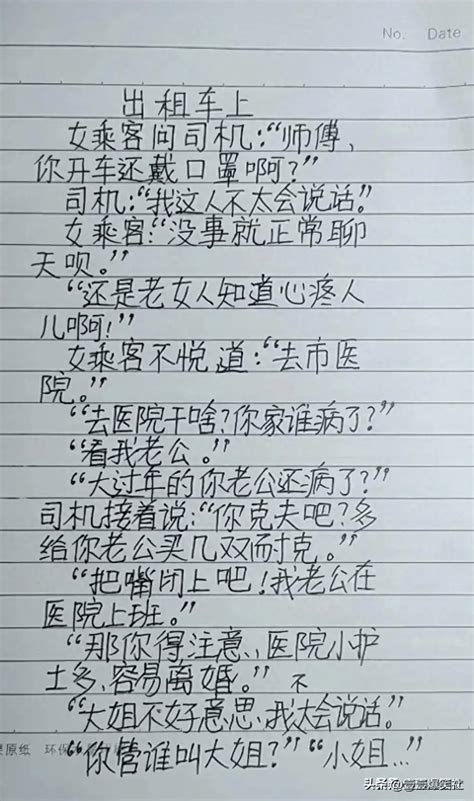 No. Date
出租车上
女乘客问司机：“师傅、
你开车还戴口罩啊？”
司机：“我这人不太会说话。”
女乘客：“没事就正常聊
天呗。”
“还是老女人知道心疼人
儿啊！”
女乘客不悦道：“去市医
院。”
“去医院干啥？你家谁病了？”
“看我老公。”
“大过年的你老公还病了？”
司机接着说：“你克夫吧？多
给你老公买几双耐克。”
“把嘴闭上吧！我老公在
医院上班。”
“那你得注意、医院小护
士多、容易离婚。”
“大姐不好意思、我不太会说话。”
“你管谁叫大姐？”“小姐...”
原纸 环保
头条 @壹壹爆笑社